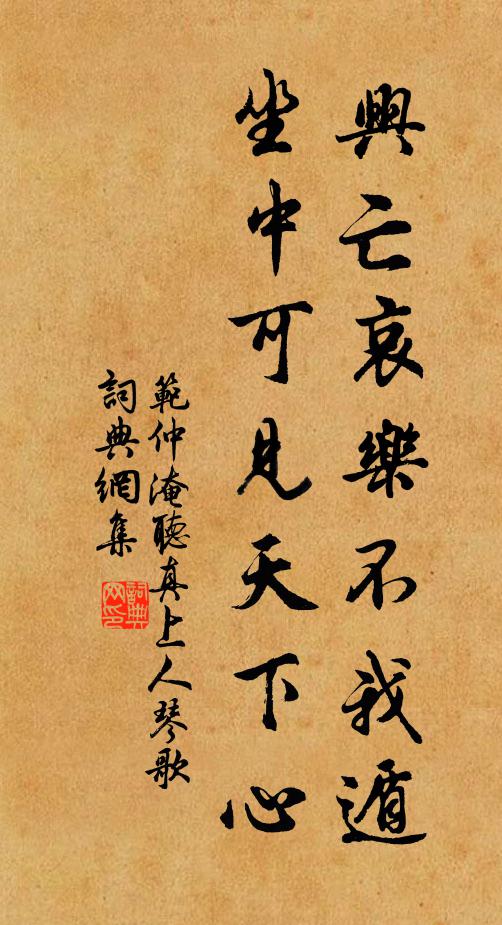 興亡哀樂不我遁
坐中可見天下心
範仲淹聽真上人琴歌
詞典網集
詞典網印